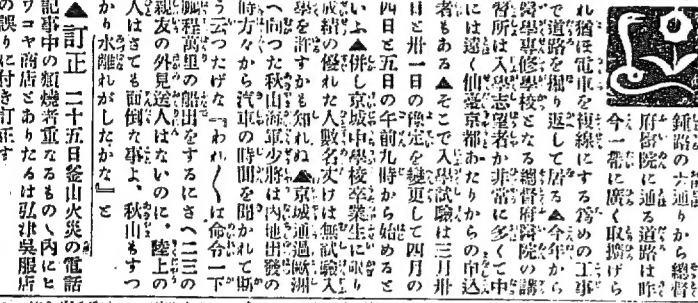 鍾路の六通りから總督
府醫院に通る道路は昨
今一部に廣く取擴げら
れ猶ほ電車を複線にする爲めの工事
で道路を掘り返して居る▲今年から
醫學專修學校となる總督府醫院の講
習所は入學志望者が非常に多くて中
には遠く仙臺京都あたりからの申込
者もある▲そこで入學試驗は三月卅
日と卅一日の豫定を變更して四月の
四日と五日の午前九時から始めると
いふ▲併し京城中學校卒業生に限り
成績の優れた人數名丈けは無試驗入
學を許すかも知れぬ▲京城通過歐洲
へ向つた秋山海軍少將は內地出發の
時方々から汽車の時間を聞かれて斯
う云つたげな『われ〳〵は命令一下
風程萬里の船出をするにさへ二三の
親友の外見送人はないのに、陸上の
人はさても面倒な事よ、秋山もすつ
かり水離れがしたかな』と
▲訂正 二十五日釜山火災の電話
記事中の類燒者重なるもの〻內にヒ
ワコヤ商店とありたるは弘津吳服店
の誤りに付き訂正す